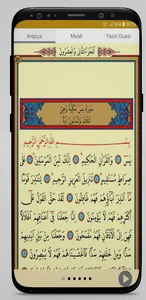 Arapça Meali Yasin Duası
اَلْجُزْءُ الثَّانِي وَالْعِشْرُونَ
سُورَةُ يٰسٓ مَكِّيَّةٌ وَهِيَ
ثَلَاثٌ وَثَمَانُونَ اٰيَةً
بِسْمِ اللّٰهِ الرَّحْمٰنِ الرَّحِيمِ
يٰسٓ وَالْقُرْاٰنِ الْحَكِيمِ اِنَّكَ لَمِنَ الْمُرْسَلِينَ عَلٰى
صِرَاطٍ مُسْتَقِيمٍ تَنْزِيلَ الْعَزِيزِ الرَّحِيمِ لِتُنْذِرَ قَوْمًا
مَٓا اُنْذِرَ اٰبَٓاؤُهُمْ فَهُمْ غَافِلُونَ لَقَدْ حَقَّ الْقَوْلُ عَلٰٓى
اَكْثَرِهِمْ فَهُمْ لَا يُؤْمِنُونَ اِنَّا جَعَلْنَا فِٓي اَعْنَاقِهِمْ
اَغْلَالًا فَهِيَ اِلَى الْاَذْقَانِ فَهُمْ مُقْمَحُونَ وَجَعَلْنَا مِنْ بَيْنِ
اَيْدِيهِمْ سَدًّا وَمِنْ خَلْفِهِمْ سَدًّا فَاَغْشَيْنَاهُمْ فَهُمْ